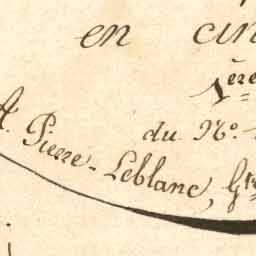 en cin
1ère
du No.
A. Pierre-Leblanc, Gr